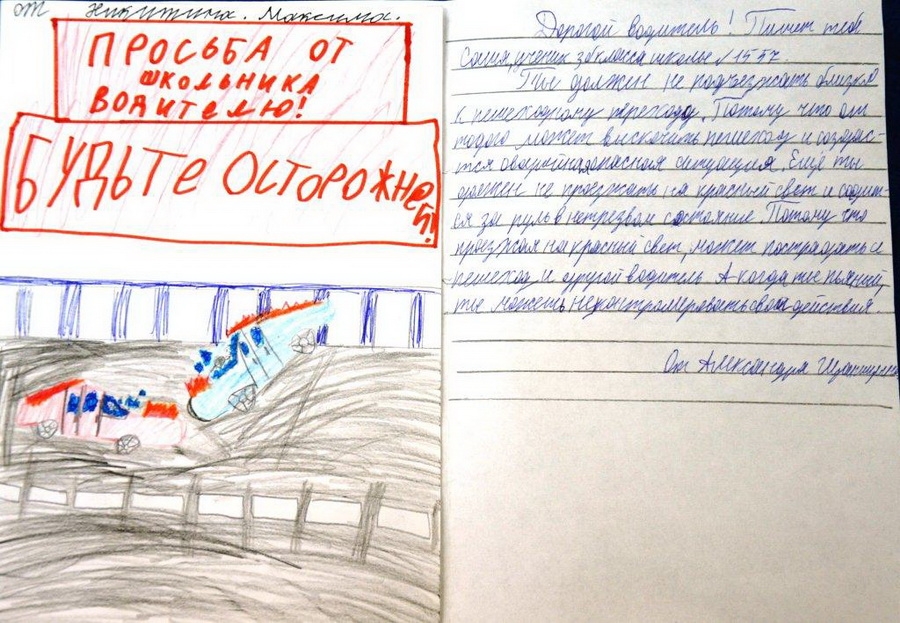 от Никитина. Максима.
ПРОСЬБА ОТ
ШКОЛЬНИКА
ВОДИТЕЛЮ!
БУДЬТЕ ОСТОРОЖНЕ
Й!
Дорогой водитель! Пишет тебе
Саша, ученик 3б класса школы №1557.
Ты должен не подъезжать близко
к пешеходному переходу. Потому что от
туда может выскочить пешеход и создас-
тся аварийна опасная ситуация. Ещё ты
должен не проезжать на красный свет и садит-
ся за руль в нетрезвом состояние. Потому что
проезжая на красный свет, может пострадать и
пешеход и другой водитель. А когда ты пьяний,
ты можешь неконтролировать свои действия.
От Александра